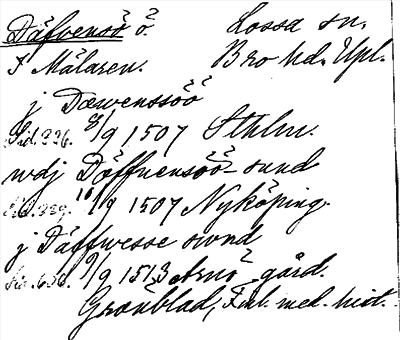 Däfvensöö. Lossa sn.
I Mälaren. Bro hd. Upl.
j Dæwenssöö
Sid. 336. 8/9 1507 Sthlm.
wdj Däffuensöö-sund
Sid. 339. 10/9 1507 Nyköping.
j Däffwesse swnd
Sid. 636. 9/9 1513 Arnö gård.
Grönblad, Finl. med. hist.